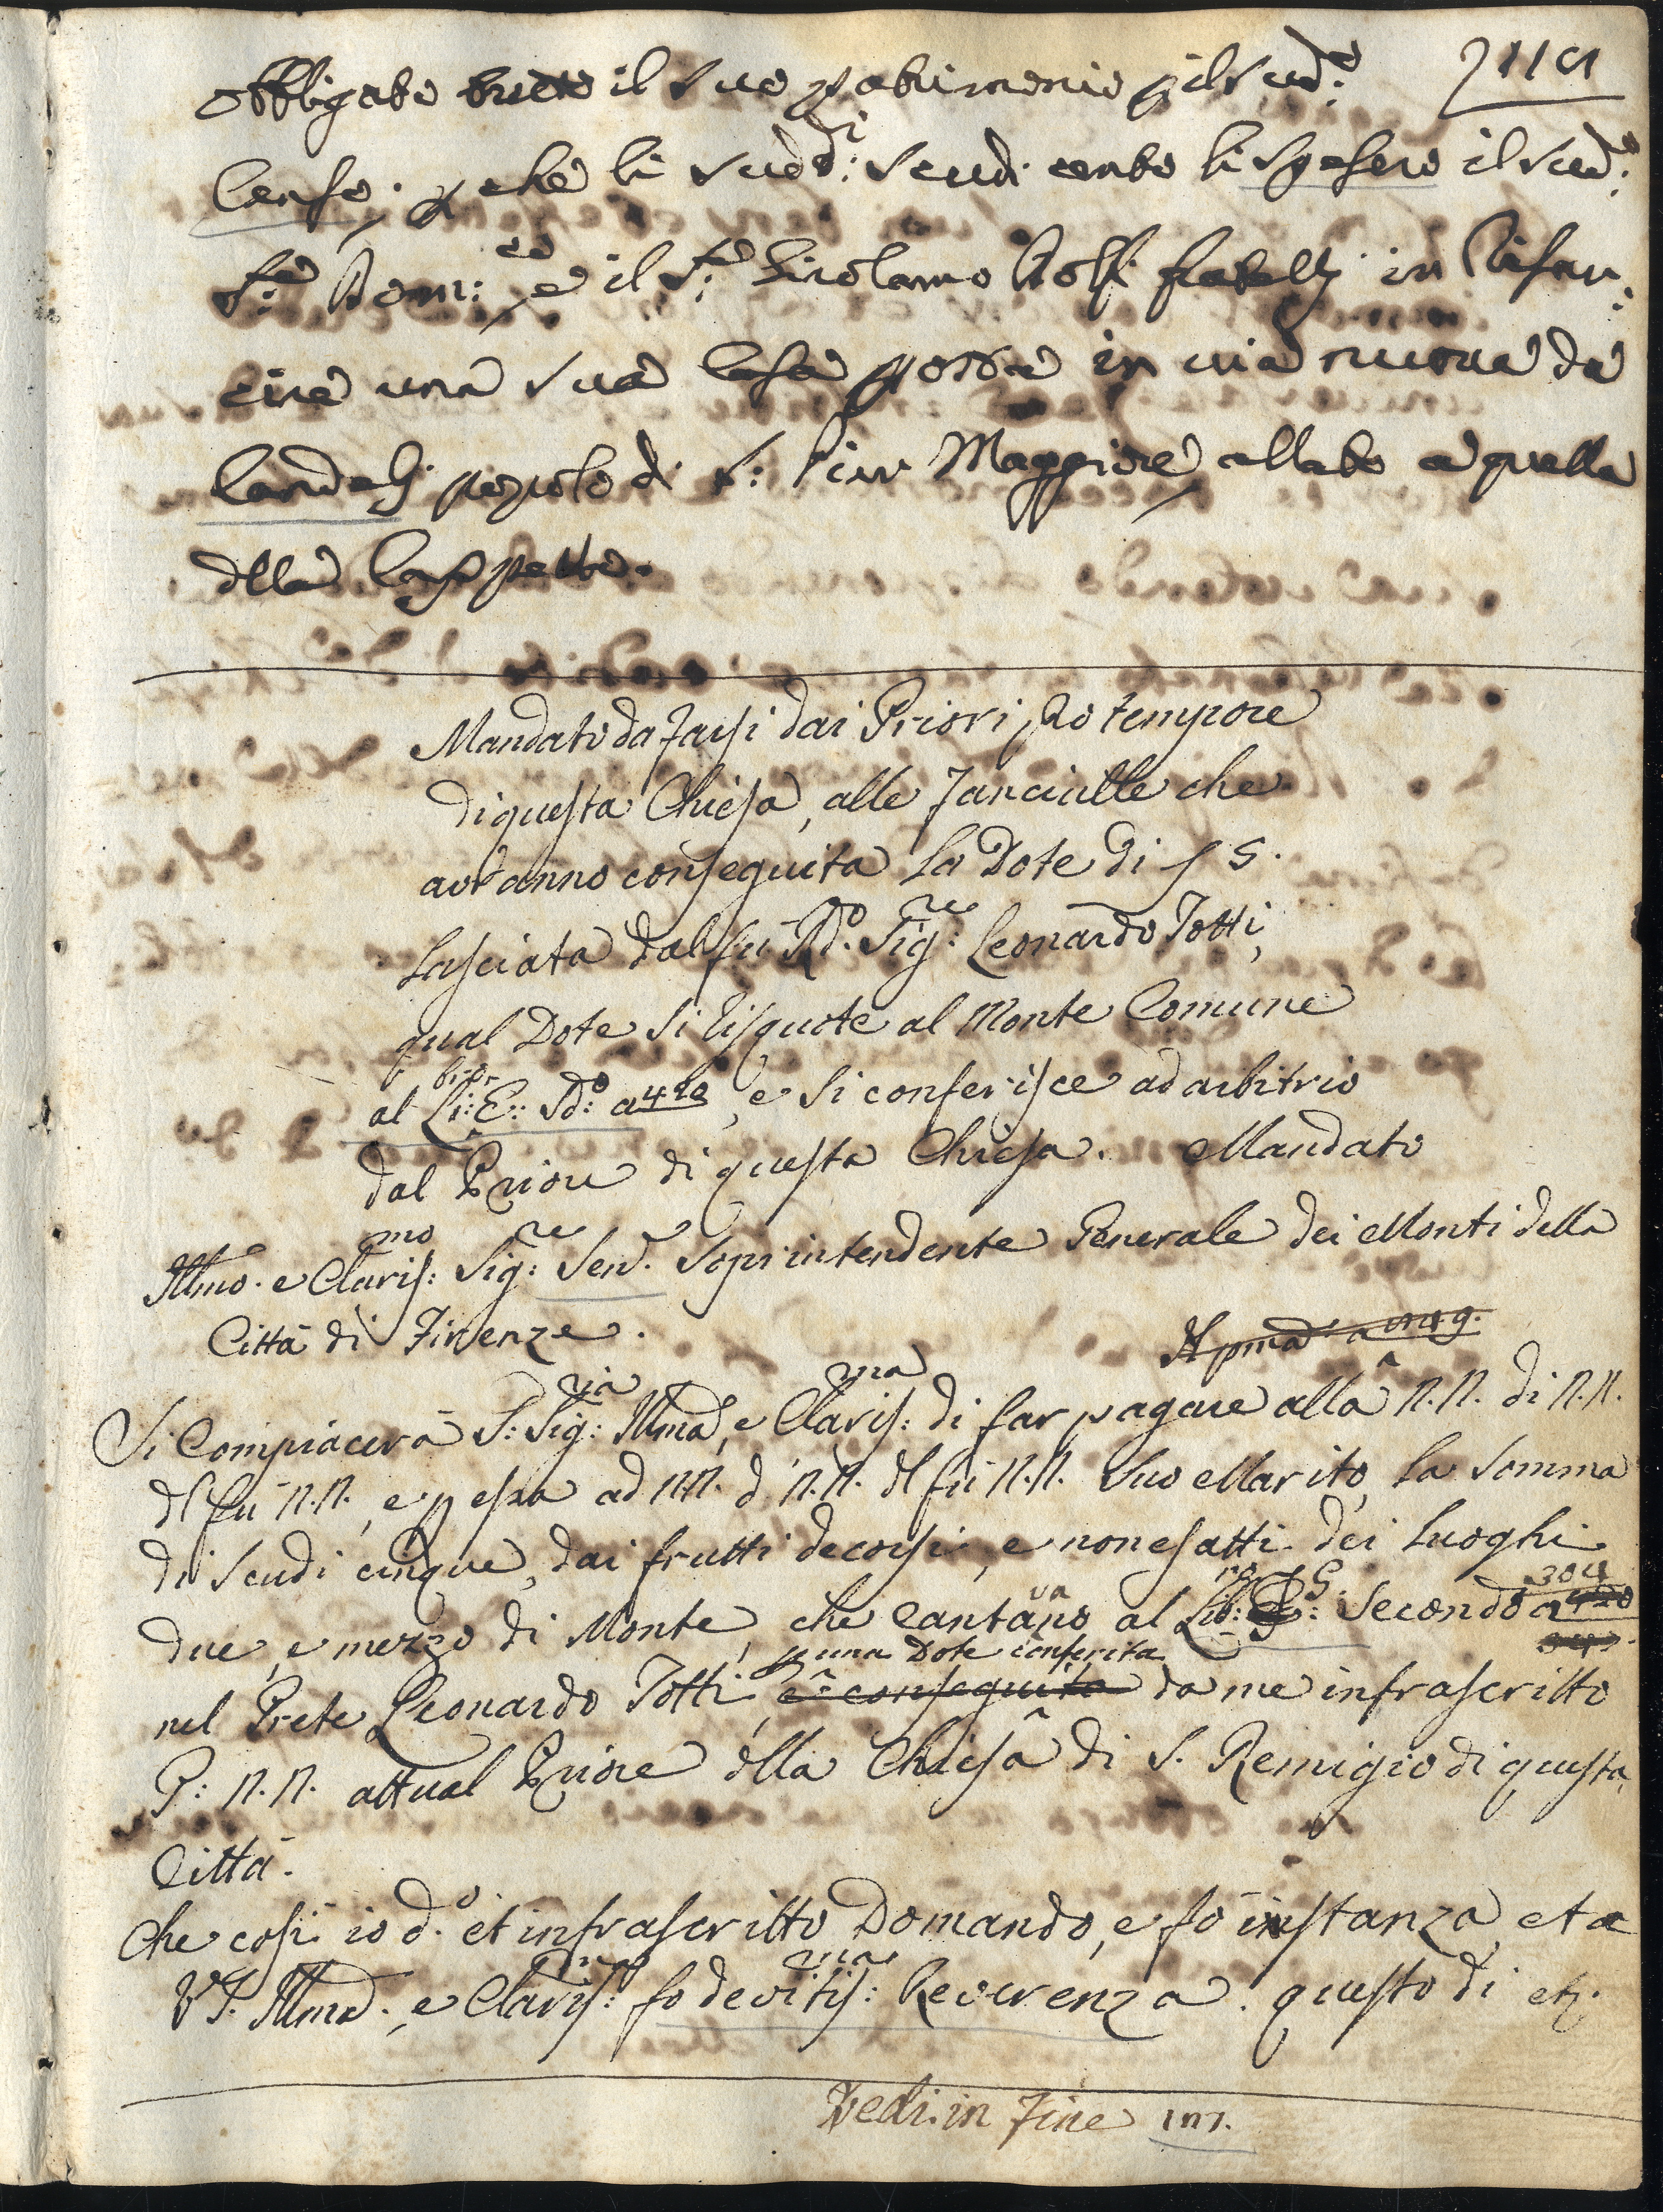 obbligato tutto il suo patrimonio p il sud.º
Censo; p che li sudd.i scudi cento li spesero il sud.º
S.re Dom:co e il S.re Girolamo fratelli in Rifon:
cire una sua Casa posta in via nuova da
Candeli popolo di S: Pier Maggiore, allato a quella
dlla
Mandato da farsi dai Priori pro tempore
di questa Chiesa, alle fanciulle che
avranno conseguita la Dote di s 5.
lasciata dal fu Rd.º Sig:re Leonardo Totti,
qual Dote si risquote al Monte Comune
al Li: E: Sd:º a 420, e si conferisce ad arbitrio
dal Priore di questa Chiesa. Mandato
Illmo. e Claris:mo Sig:re Sen.e Soprintendente Generale dei Monti della
Città di Firenze.
Si Compiacerà S: Sig:ria Illma, e Claris:ma di far pagare alla N.N. di N.N.
dl fù N.N., e p essa ad N.N. d N.N. dl fù N.N. suo Marito, la somma
di Scudi cinque, dai frutti decorsi, e non esatti dei Luoghi
due, e mezzo di Monte, che cantano al Lib:ro G: Secondo a 420 304
nel Prete Leonardo Totti, e conseguita p una Dote conferita da me infrascritto
P: N.N. attual Priore dlla Chiesa di S. Remigio di questa
Città.
Che così io d.º et infrascritto Domando, e fò instanza, et a
VS. Illma. e Claris:ma fo devotis:ma Reverenza. questo dì etc.
Vedi in Fine 107.